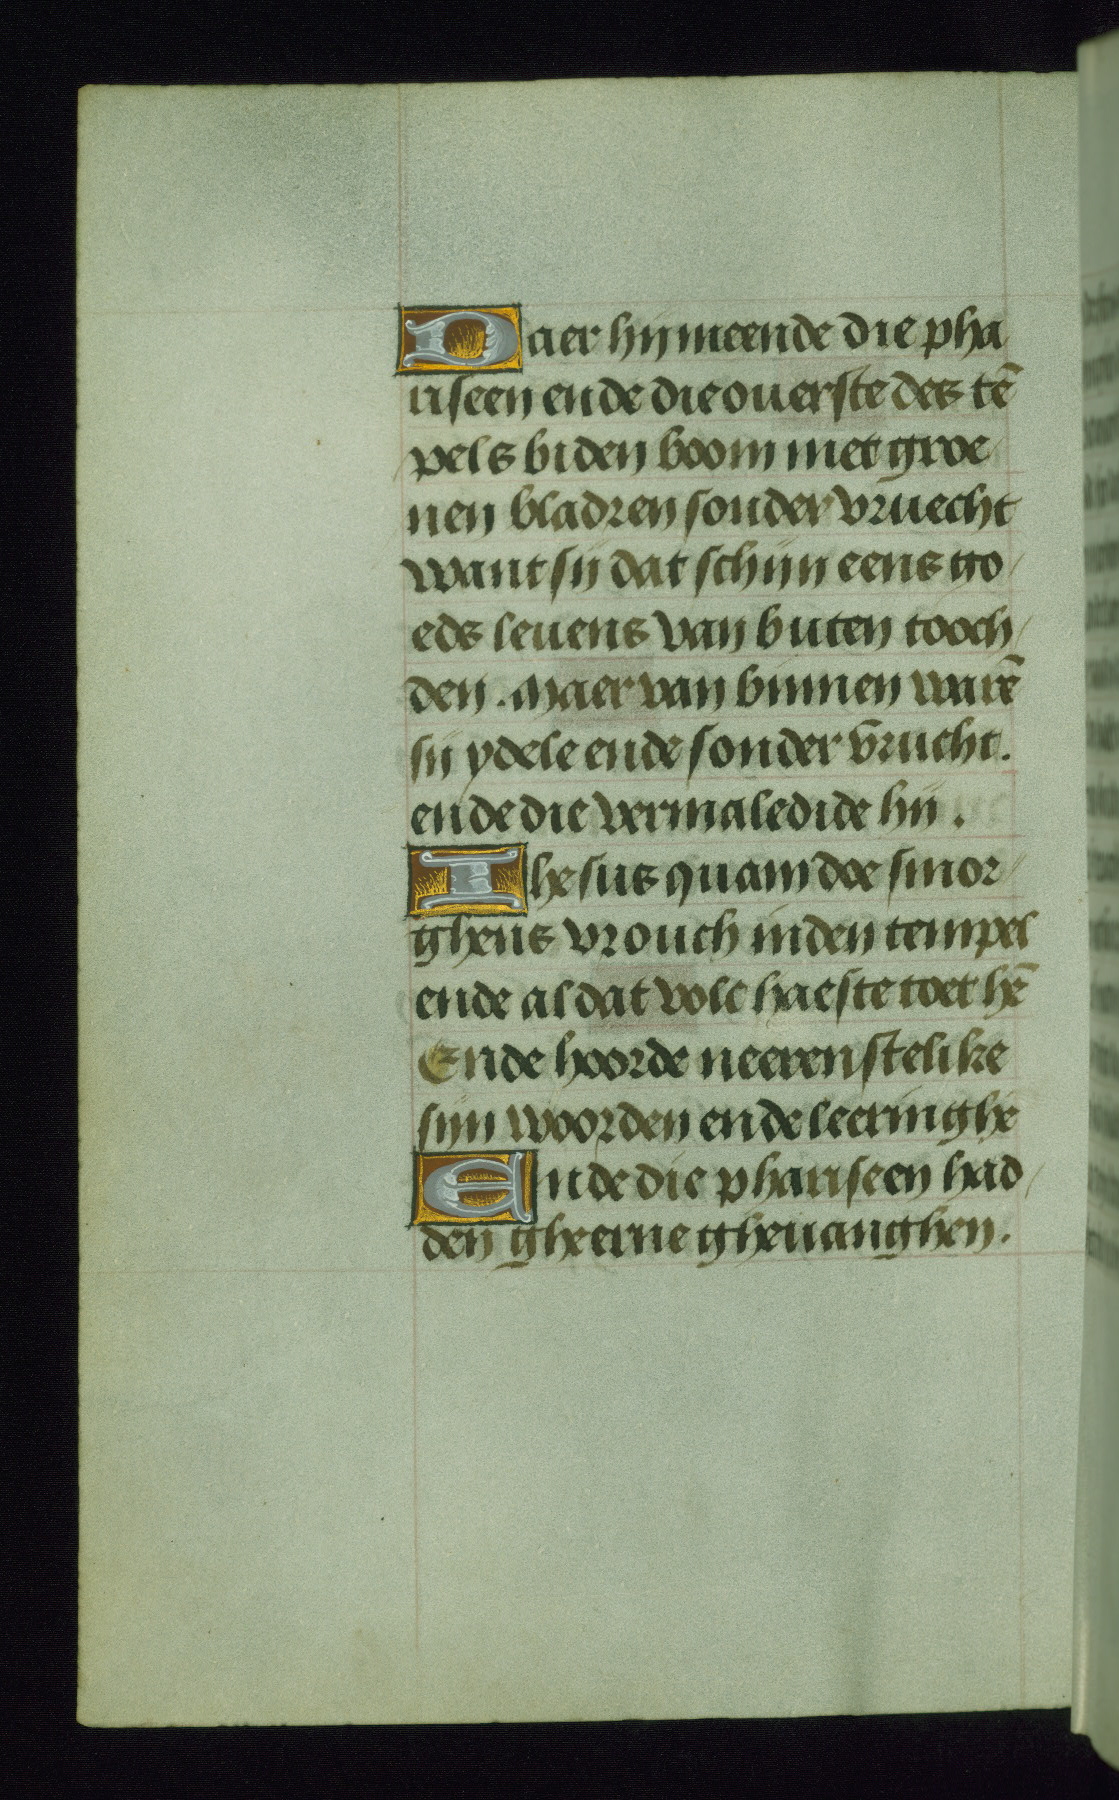 Daer hij meende die pha
riseen ende die ouerste des tē
pels bi den boom met groe
nen bladren sonder vruecht
want sij dat schijn eens go
eds leuens van buten tooch
den. Maer van binnen warē
sij ydele ende sonder vrucht.
ende die vermaledide hij.
Ihesus quam doe smor
ghens vrouch inden tempel
ende al dat volc haeste toet hē
Ende hoorde neerenstelike
sijn woorden ende leeringhē
Ende die phariseen had
den gheerne gheuanghen.